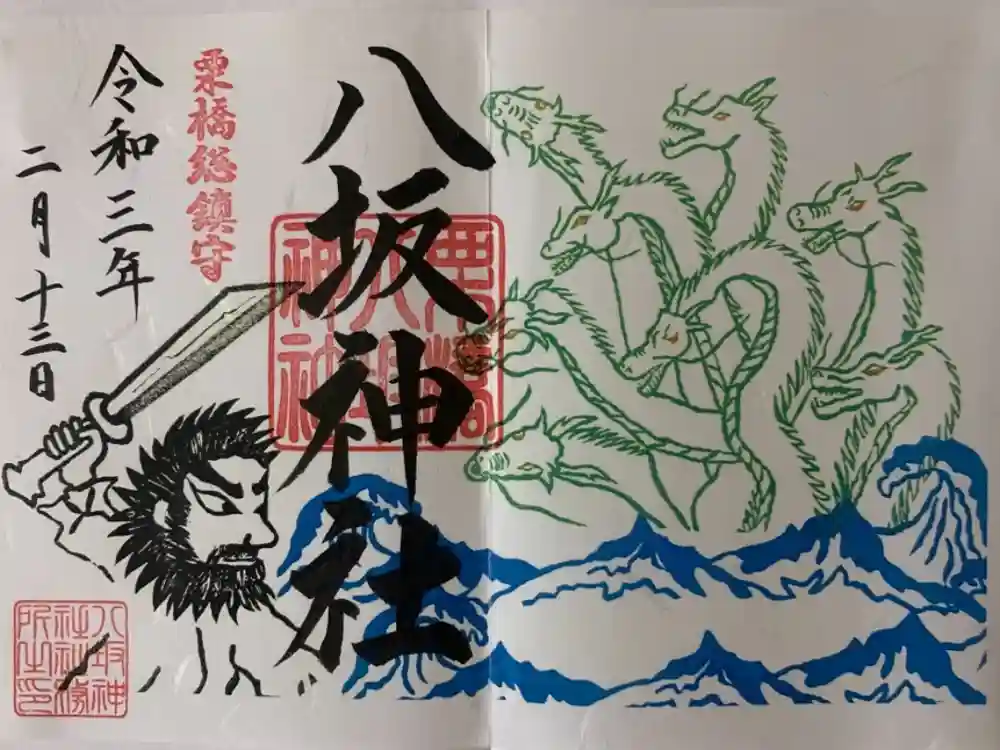 八坂神社
栗橋総鎮守
令和三年
二月十三日
栗橋
八坂
神社
八坂神
社社務
所之印